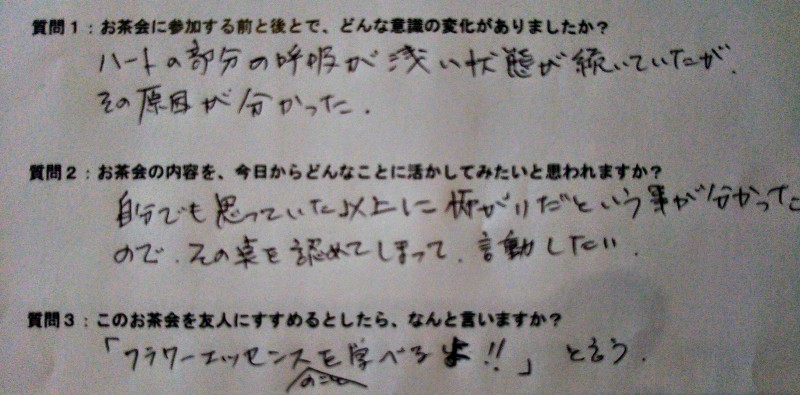 質問1:お茶会に参加する前と後とで、どんな意識の変化がありましたか?
ハートの部分の呼吸が浅い状態が続いていたが、
その原因が分かった。
質問2:お茶会の内容を、今日からどんなことに活かしてみたいと思われますか?
自分でも思っていた以上に怖がりだという事が分かった
ので、その点を認めてしまって、言動したい。
質問3:このお茶会を友人にすすめるとしたら、なんと言いますか?
「フラワーエッセンスを学べるよ!!」と言う。
のこと